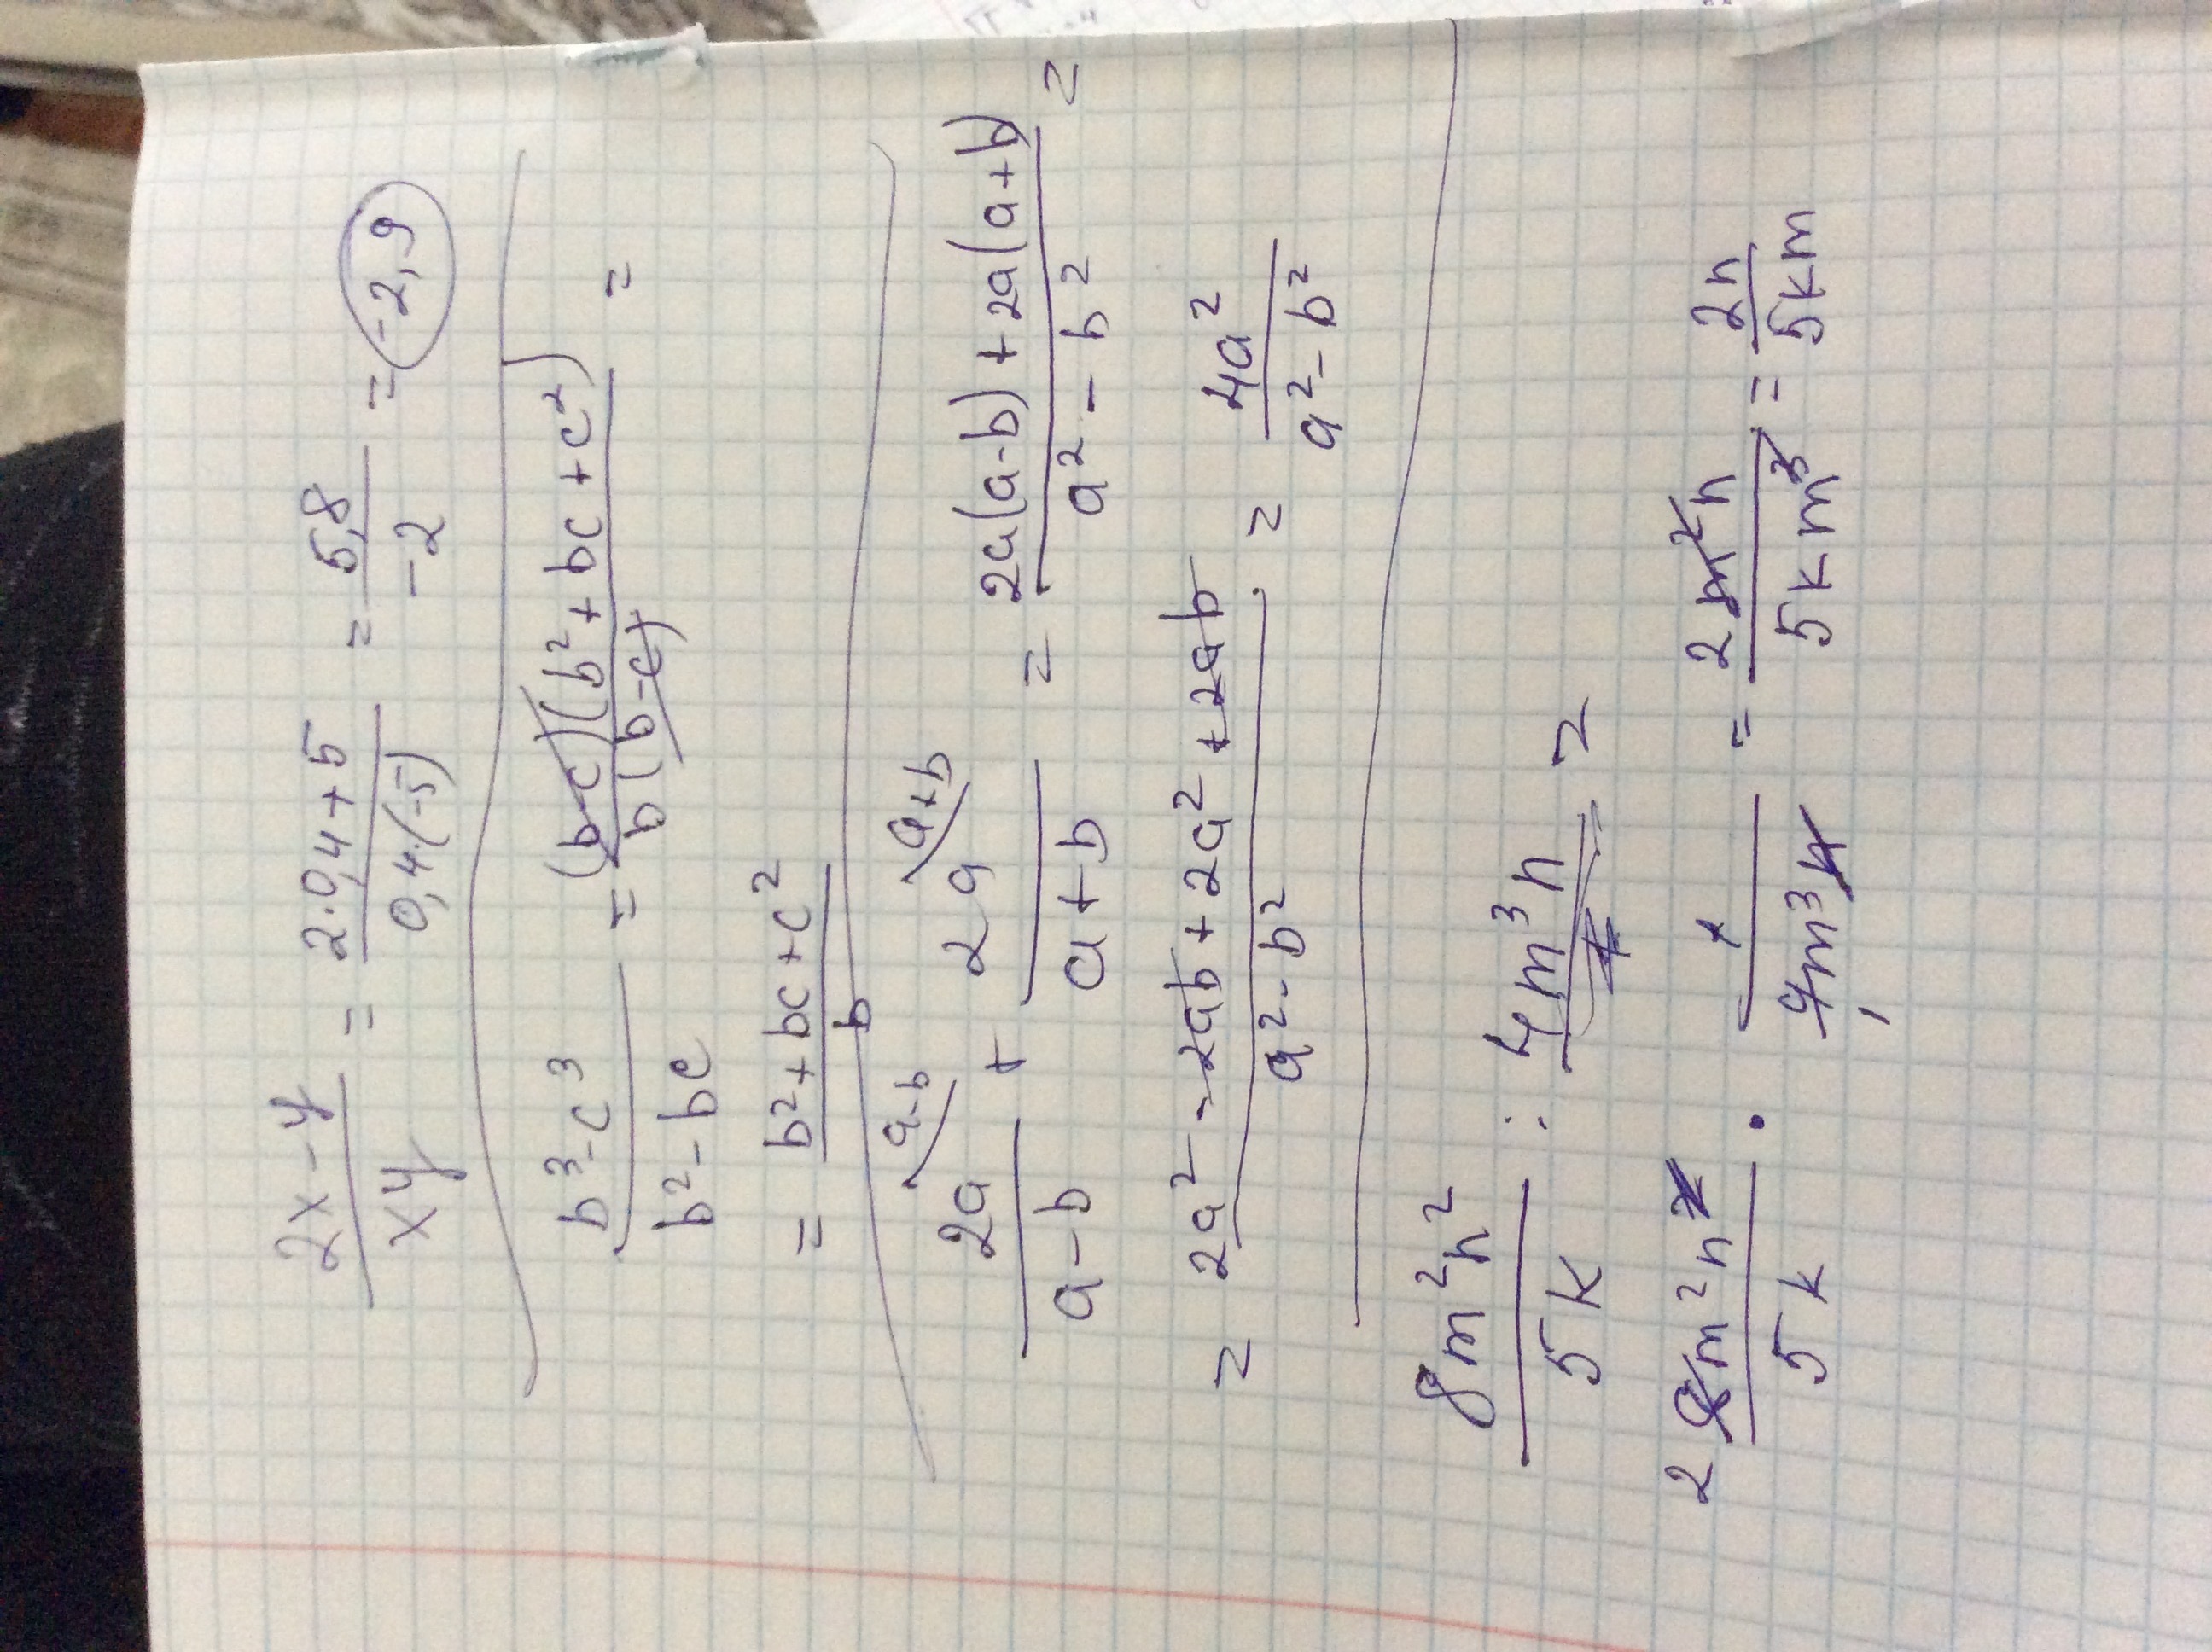 (2x-y)/(xy) = (2·0,4+5)/(0,4·(-5)) = 5,8/-2 = -2,9
(b³-c³)/(b²-bc) = ((b-c)(b²+bc+c²))/(b(b-c)) =
= (b²+bc+c²)/b
a-b a+b
2a/(a-b) + 2a/(a+b) = (2a(a-b)+2a(a+b))/(a²-b²) =
= (2a²-2ab+2a²+2ab)/(a²-b²) = 4a²/(a²-b²)
8m²n²/5k : 4m³n =
2 8m²n²/5k · 1/4m³n = 2m²n/5km³ = 2n/5km